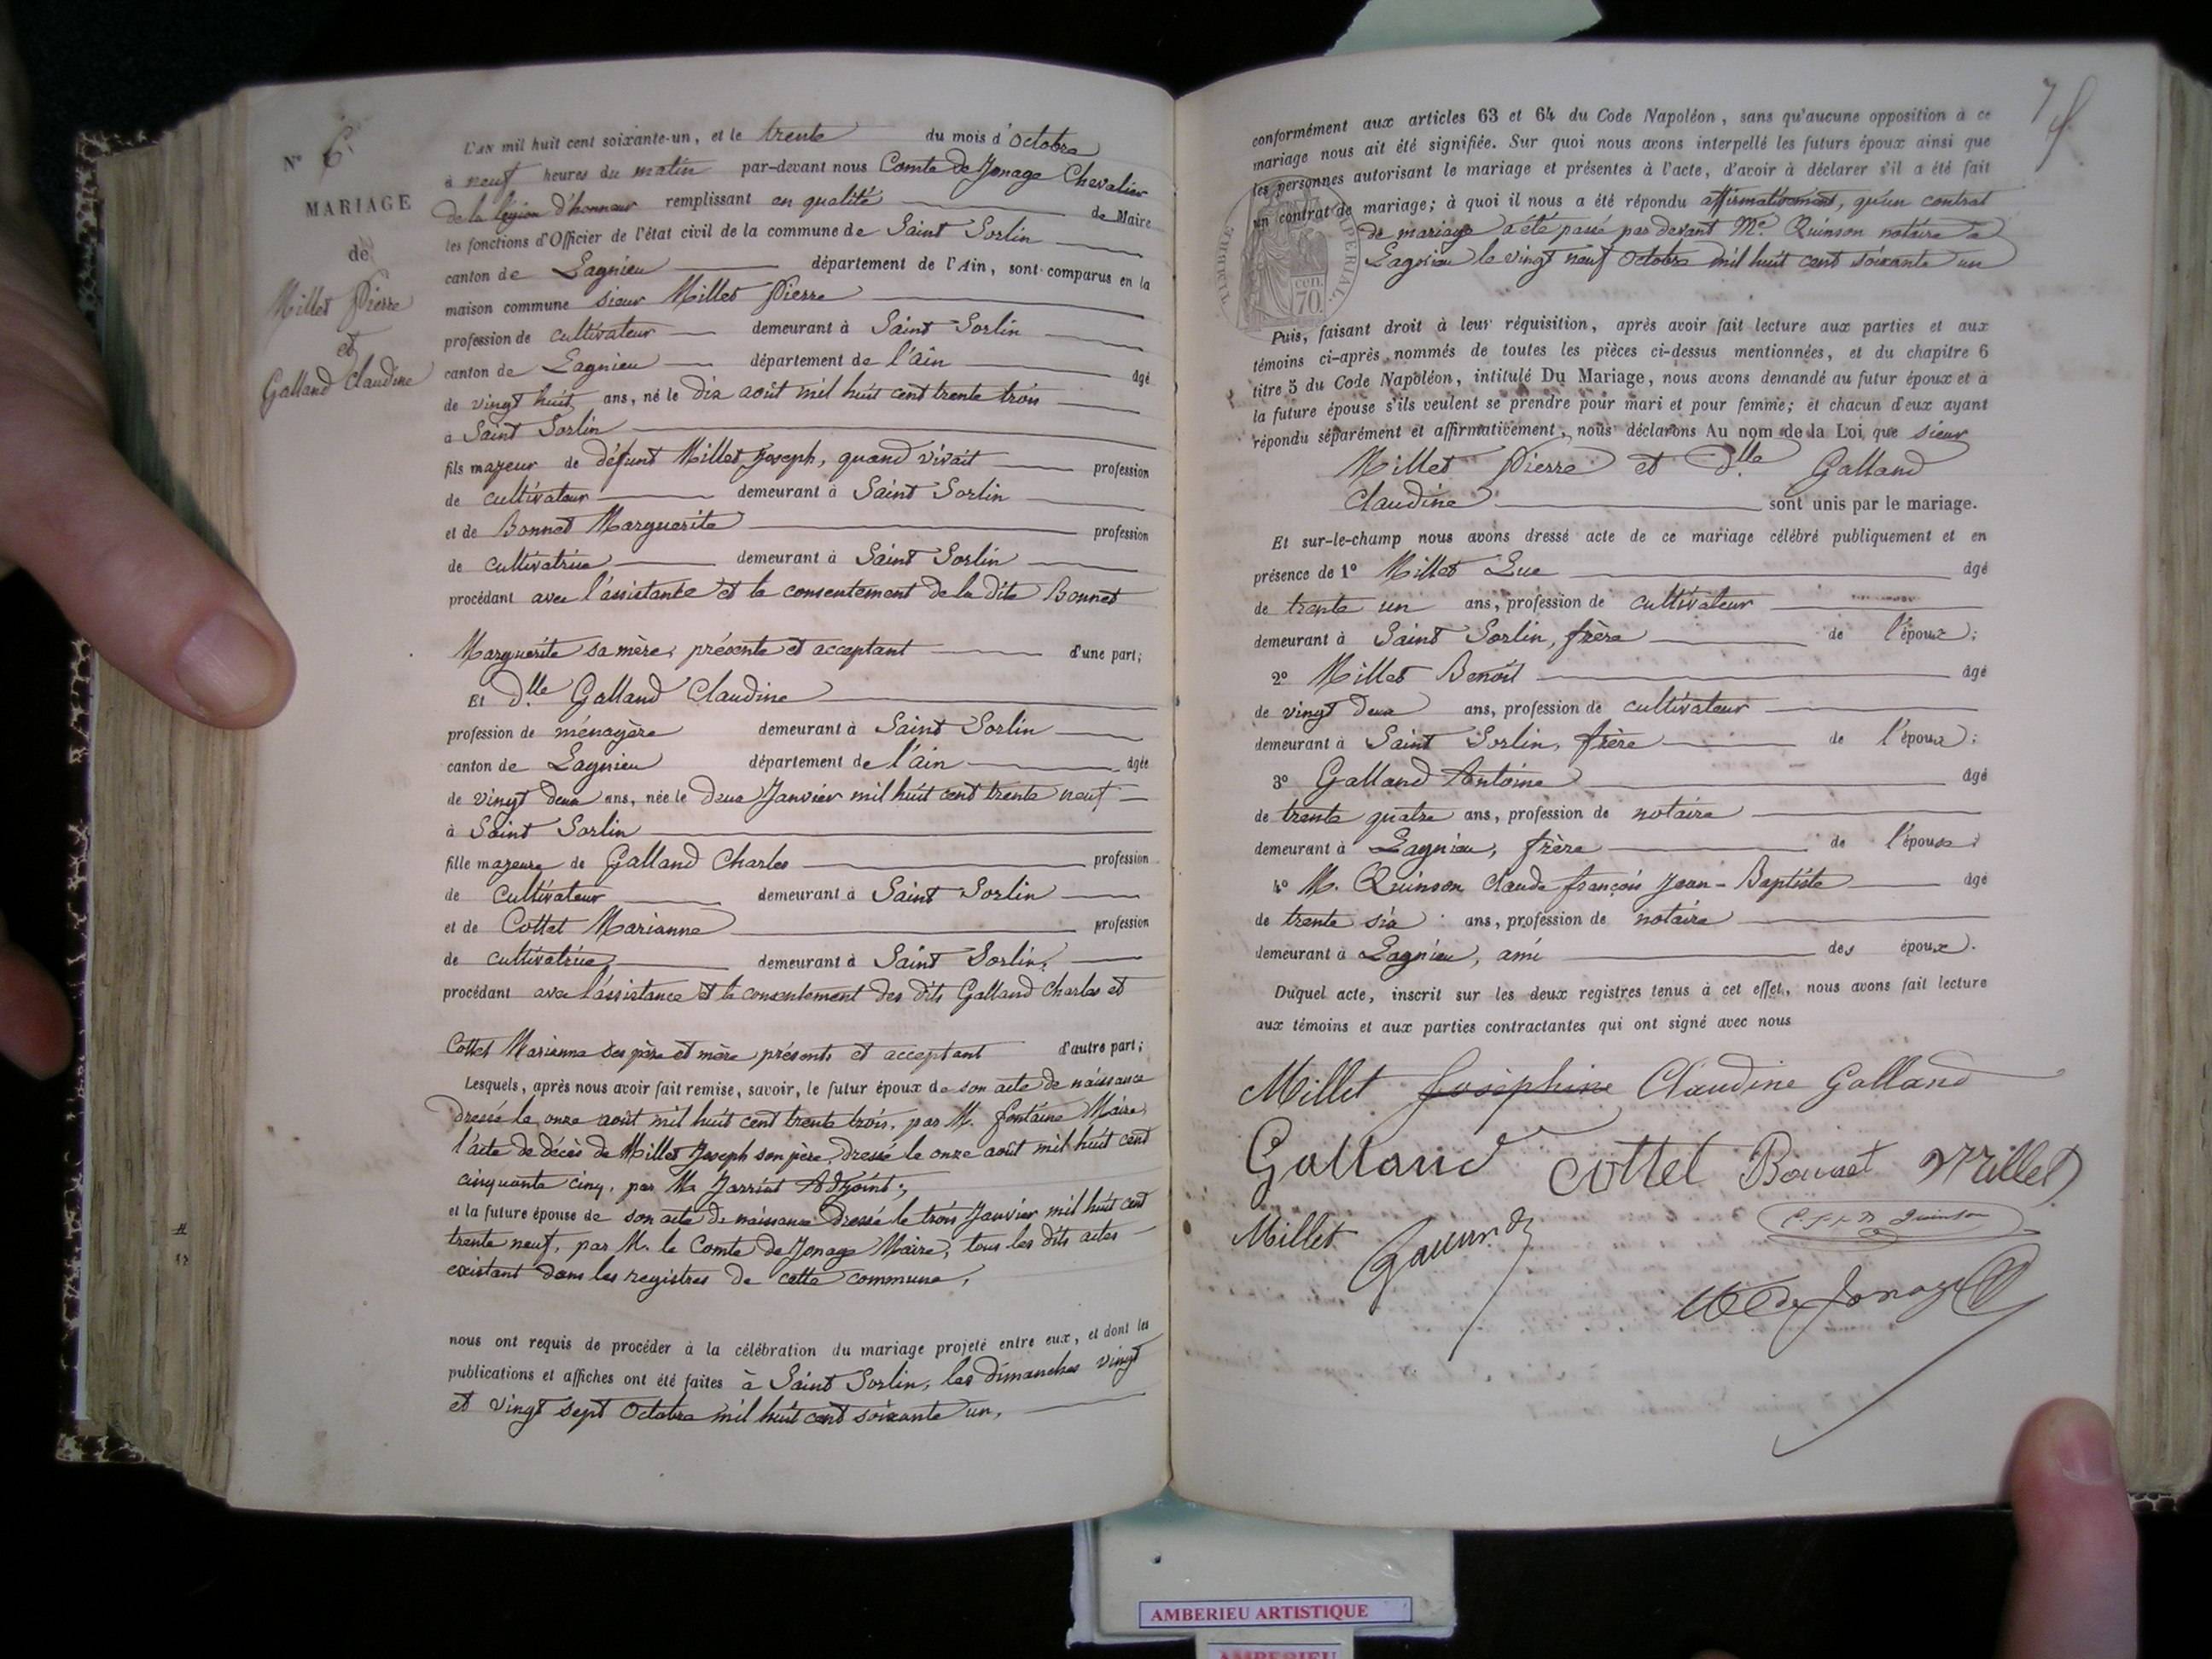 N° 6
MARIAGE
de
Millet Pierre
et
Galland Claudine
L'AN mil huit cent soixante-un, et le trente du mois d'Octobre
à neuf heures du matin par-devant nous Comte de Jonage Chevalier
de la légion d'honneur remplissant en qualité de Maire
les fonctions d'Officier de l'état civil de la commune de Saint Sorlin
canton de Lagnieu département de l'Ain, sont comparus en la
maison commune sieur Millet Pierre
profession de cultivateur demeurant à Saint Sorlin
canton de Lagnieu département de l'ain âgé
de vingt huit ans, né le dix août mil huit cent trente trois
à Saint Sorlin
fils majeur de défunt Millet Joseph, quand vivait profession
de cultivateur demeurant à Saint Sorlin
et de Bonnet Marguerite profession
de cultivatrice demeurant à Saint Sorlin
procédant avec l'assistance et le consentement de la dite Bonnet
Marguerite sa mère, présente et acceptant d'une part;
Et Dlle Galland Claudine
profession de ménagère demeurant à Saint Sorlin
canton de Lagnieu département de l'ain âgée
de vingt deux ans, née le deux Janvier mil huit cent trente neuf
à Saint Sorlin
fille majeure de Galland Charles profession
de cultivateur demeurant à Saint Sorlin
et de Cottet Marianne profession
de cultivatrice demeurant à Saint Sorlin,
procédant avec l'assistance et le consentement des dits Galland Charles et
Cottet Marianne ses père et mère présents et acceptant d'autre part;
Lesquels, après nous avoir fait remise, savoir, le futur époux de son acte de naissance
dressé le onze août mil huit cent trente trois, par M. fontaine Maire,
l'acte de décès de Millet Joseph son père, dressé le onze août mil huit cent
cinquante cinq, par M. Jarriat Adjoint;
et la future épouse de son acte de naissance dressé le trois Janvier mil huit cent
trente neuf, par M. le Comte de Jonage Maire, tous les dits actes
existant dans les registres de cette commune,
nous ont requis de procéder à la célébration du mariage projeté entre eux, et dont les
publications et affiches ont été faites à Saint Sorlin, les dimanches vingt
et vingt sept Octobre mil huit cent soixante un,
7
conformément aux articles 63 et 64 du Code Napoléon, sans qu'aucune opposition à ce
mariage nous ait été signifiée. Sur quoi nous avons interpellé les futurs époux ainsi que
les personnes autorisant le mariage et présentes à l'acte, d'avoir à déclarer s'il a été fait
un contrat de mariage; à quoi il nous a été répondu affirmativement, qu'un contrat
de mariage a été passé par devant Me. Quinson notaire à
Lagnieu le vingt neuf Octobre mil huit cent soixante un
TIMBRE IMPERIAL
cen.
70.
Puis, faisant droit à leur réquisition, après avoir fait lecture aux parties et aux
témoins ci-après nommés de toutes les pièces ci-dessus mentionnées, et du chapitre 6
titre 5 du Code Napoléon, intitulé Du Mariage, nous avons demandé au futur époux et à
la future épouse s'ils veulent se prendre pour mari et pour femme; et chacun d'eux ayant
répondu séparément et affirmativement, nous déclarons Au nom de la Loi que sieur
Millet Pierre et Dlle Galland
Claudine sont unis par le mariage.
Et sur-le-champ nous avons dressé acte de ce mariage célébré publiquement et en
présence de 1° Millet Luc âgé
de trente un ans, profession de cultivateur
demeurant à Saint Sorlin, frère de l'époux;
2° Millet Benoît âgé
de vingt deux ans, profession de cultivateur
demeurant à Saint Sorlin, frère de l'époux;
3° Galland Antoine âgé
de trente quatre ans, profession de notaire
demeurant à Lagnieu, frère de l'épouse;
4° M. Quinson Claude françois Jean-Baptiste âgé
de trente six ans, profession de notaire
demeurant à Lagnieu, ami des époux.
Duquel acte, inscrit sur les deux registres tenus à cet effet, nous avons fait lecture
aux témoins et aux parties contractantes qui ont signé avec nous
Millet Joséphine Claudine Galland
Galland Cottet Bonnet Millet
Millet Galland Quinson
Cte de Jonage
AMBERIEU ARTISTIQUE
AMBERIEU